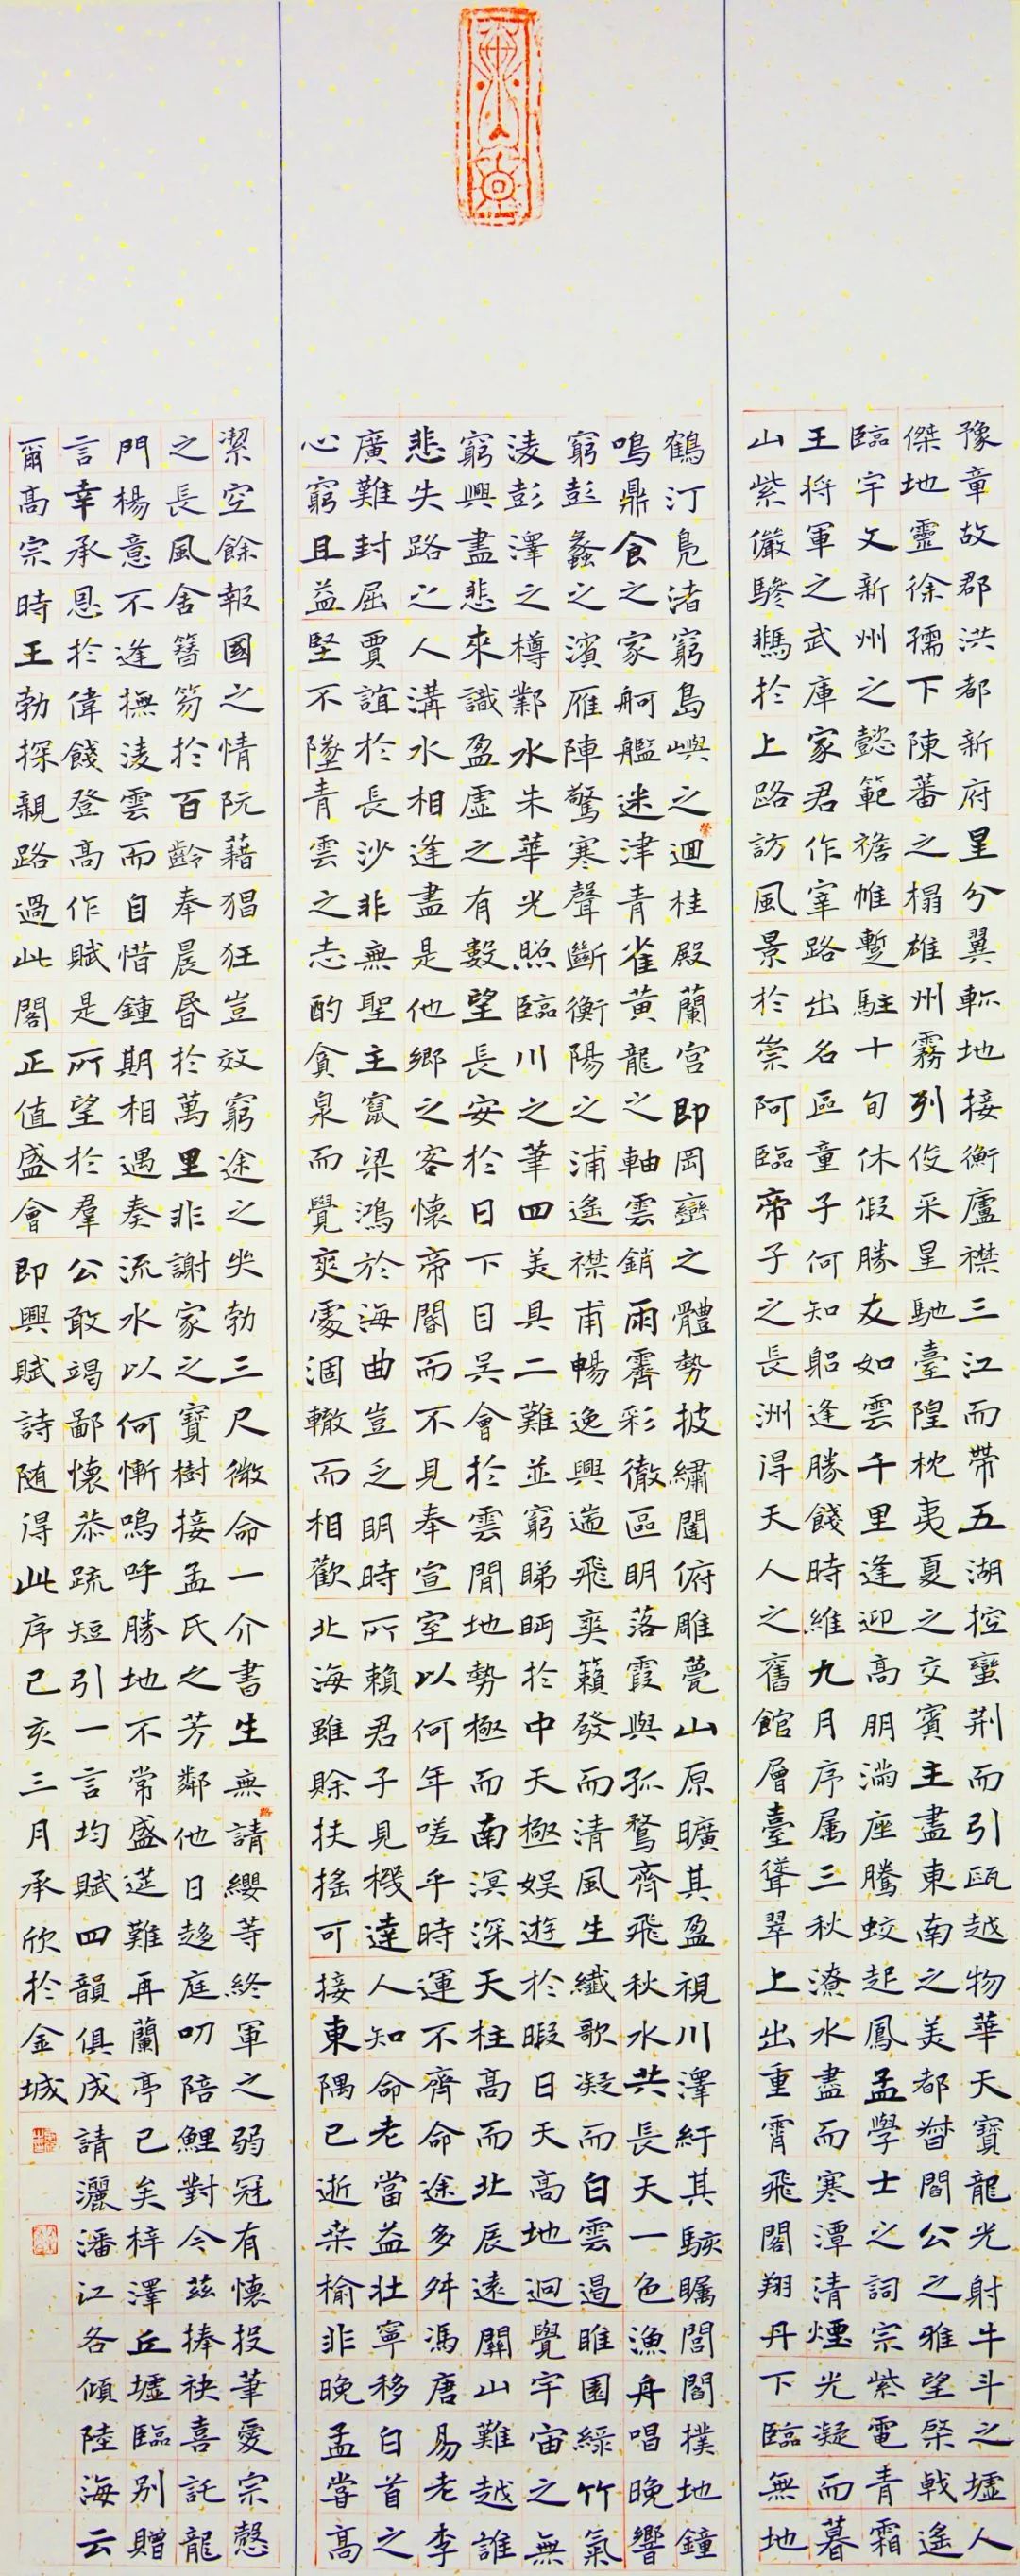 豫章故郡洪都新府星分翼軫地接衡廬襟三江而帶五湖控蠻荊而引甌越物華天寶龍光射牛斗之墟人
傑地靈徐孺下陳蕃之榻雄州霧列俊采星馳臺隍枕夷夏之交賓主盡東南之美都督閻公之雅望棨戟遙
臨宇文新州之懿範襜帷暫駐十旬休假勝友如雲千里逢迎高朋滿座騰蛟起鳳孟學士之詞宗紫電青霜
王將軍之武庫家君作宰路出名區童子何知躬逢勝餞時維九月序属三秋潦水盡而寒潭清煙光凝而暮
山紫儼驂騑於上路訪風景於崇阿臨帝子之長洲得天人之舊館層臺聳翠上出重霄飛閣翔丹下臨無地
鶴汀鳧渚窮島嶼之迴桂殿蘭宮即岡巒之體勢披繡闥俯雕甍山原曠其盈視川澤紆其駭矚閭閻撲地鐘
鳴鼎食之家舸艦迷津青雀黃龍之軸雲銷雨霽彩徹區明落霞與孤鶩齊飛秋水共長天一色漁舟唱晚響
窮彭蠡之濱雁陣驚寒聲斷衡陽之浦遙襟甫暢逸興遄飛爽籟發而清風生纖歌凝而白雲遏睢園綠竹氣
淩彭澤之樽鄴水朱華光照臨川之筆四美具二難並窮睇眄於中天極娛遊於暇日天高地迥覺宇宙之無
窮興盡悲來識盈虛之有數望長安於日下目吳會於雲間地勢極而南溟深天柱高而北辰遠關山難越誰
悲失路之人溝水相逢盡是他鄉之客懷帝閽而不見奉宣室以何年嗟乎時運不齊命途多舛馮唐易老李
廣難封屈賈誼於長沙非無聖主竄梁鴻於海曲豈乏明時所賴君子見機達人知命老當益壯寧移白首之
心窮且益堅不墜青雲之志酌貪泉而覺爽處涸轍而相歡北海雖賒扶搖可接東隅已逝桑榆非晚孟嘗高
潔空餘報國之情阮藉猖狂豈效窮途之哭勃三尺微命一介書生無路請纓等終軍之弱冠有懷投筆愛宗愨
之長風舍簪笏於百齡奉晨昏於萬里非謝家之寶樹接孟氏之芳鄰他日趨庭叨陪鯉對今茲捧袂喜託龍
門楊意不逢撫淩雲而自惜鍾期相遇奏流水以何慚鳴呼勝地不常盛筵難再蘭亭已矣梓澤丘墟臨別贈
言幸承恩於偉餞登高作賦是所望於羣公敢竭鄙懷恭疏短引一言均賦四韻俱成請灑潘江各傾陸海云
爾高宗時王勃探親路過此閣正值盛會即興賦詩随得此序己亥三月承欣於金城